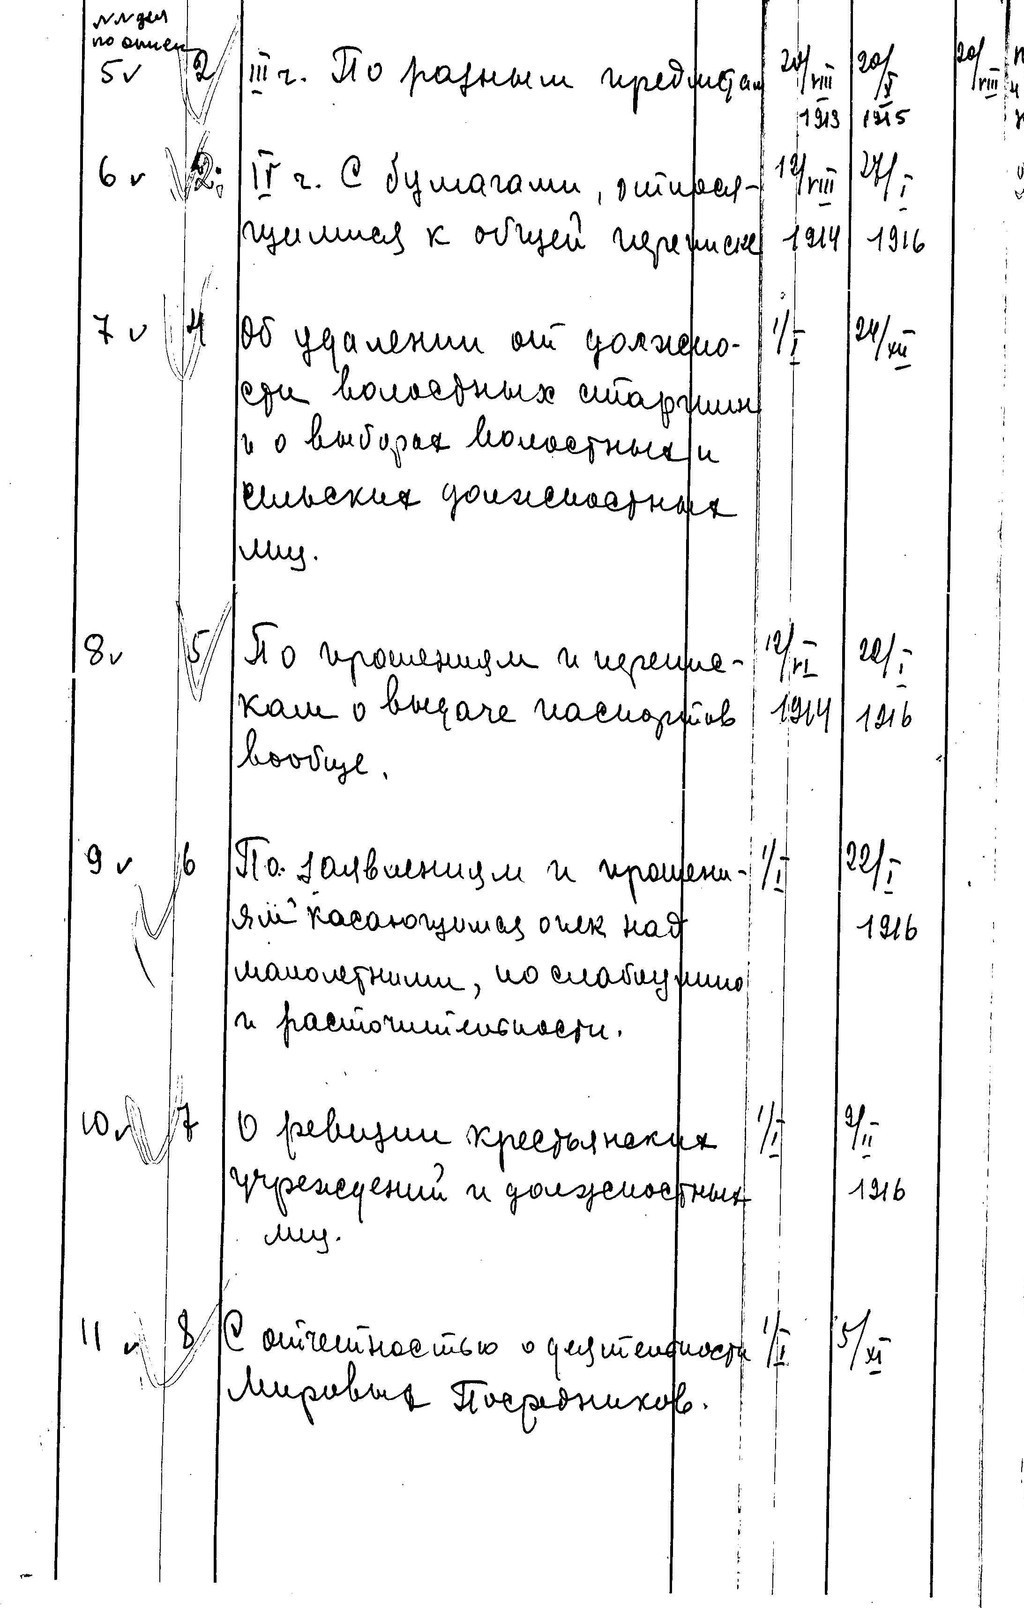 №№ дел
по описи
5 2 III ч. По разным предметам 20/VIII 1913 20/V 1915 20/VIII
6 2 IV ч. С бумагами, относя- 12/VIII 27/I
щимися к общей переписке 1914 1916
7 4 Об удалении от должно- 1/I 24/XII
сти волостных старшин
и о выборах волостных и
сельских должностных
лиц.
8 5 По прошениям и перепис- 12/VI 22/I
кам о выдаче паспортов 1914 1916
вообще.
9 6 По заявлениям и прошени- 1/I 22/I
ям касающимся опек над 1916
малолетними, по слабоумию
и расточительности.
10 7 О ревизии крестьянских 1/I 9/II
учреждений и должностных 1916
лиц.
11 8 С отчетностью о деятельности 1/I 5/XI
Мировых Посредников.